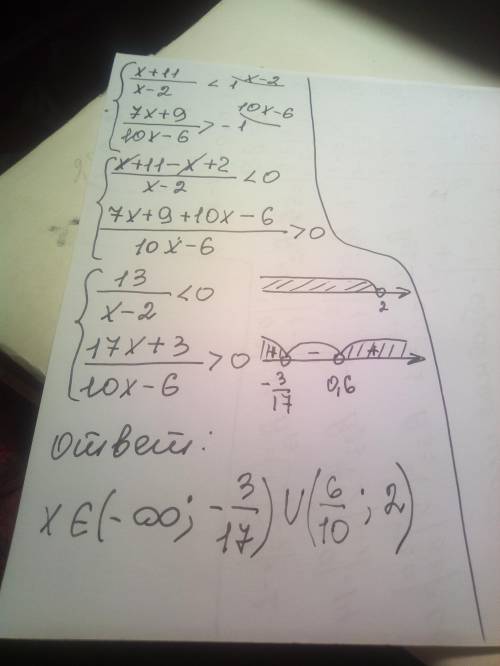 { (x+11)/(x-2) < 1 x-2
(7x+9)/(10x-6) > -1 10x-6
{ (x+11-x+2)/(x-2) < 0
(7x+9+10x-6)/(10x-6) > 0
{ 13/(x-2) < 0
2
(17x+3)/(10x-6) > 0
+ - +
-3/17 0,6
ответ:
x∈(-∞; -3/17)∪(6/10; 2)